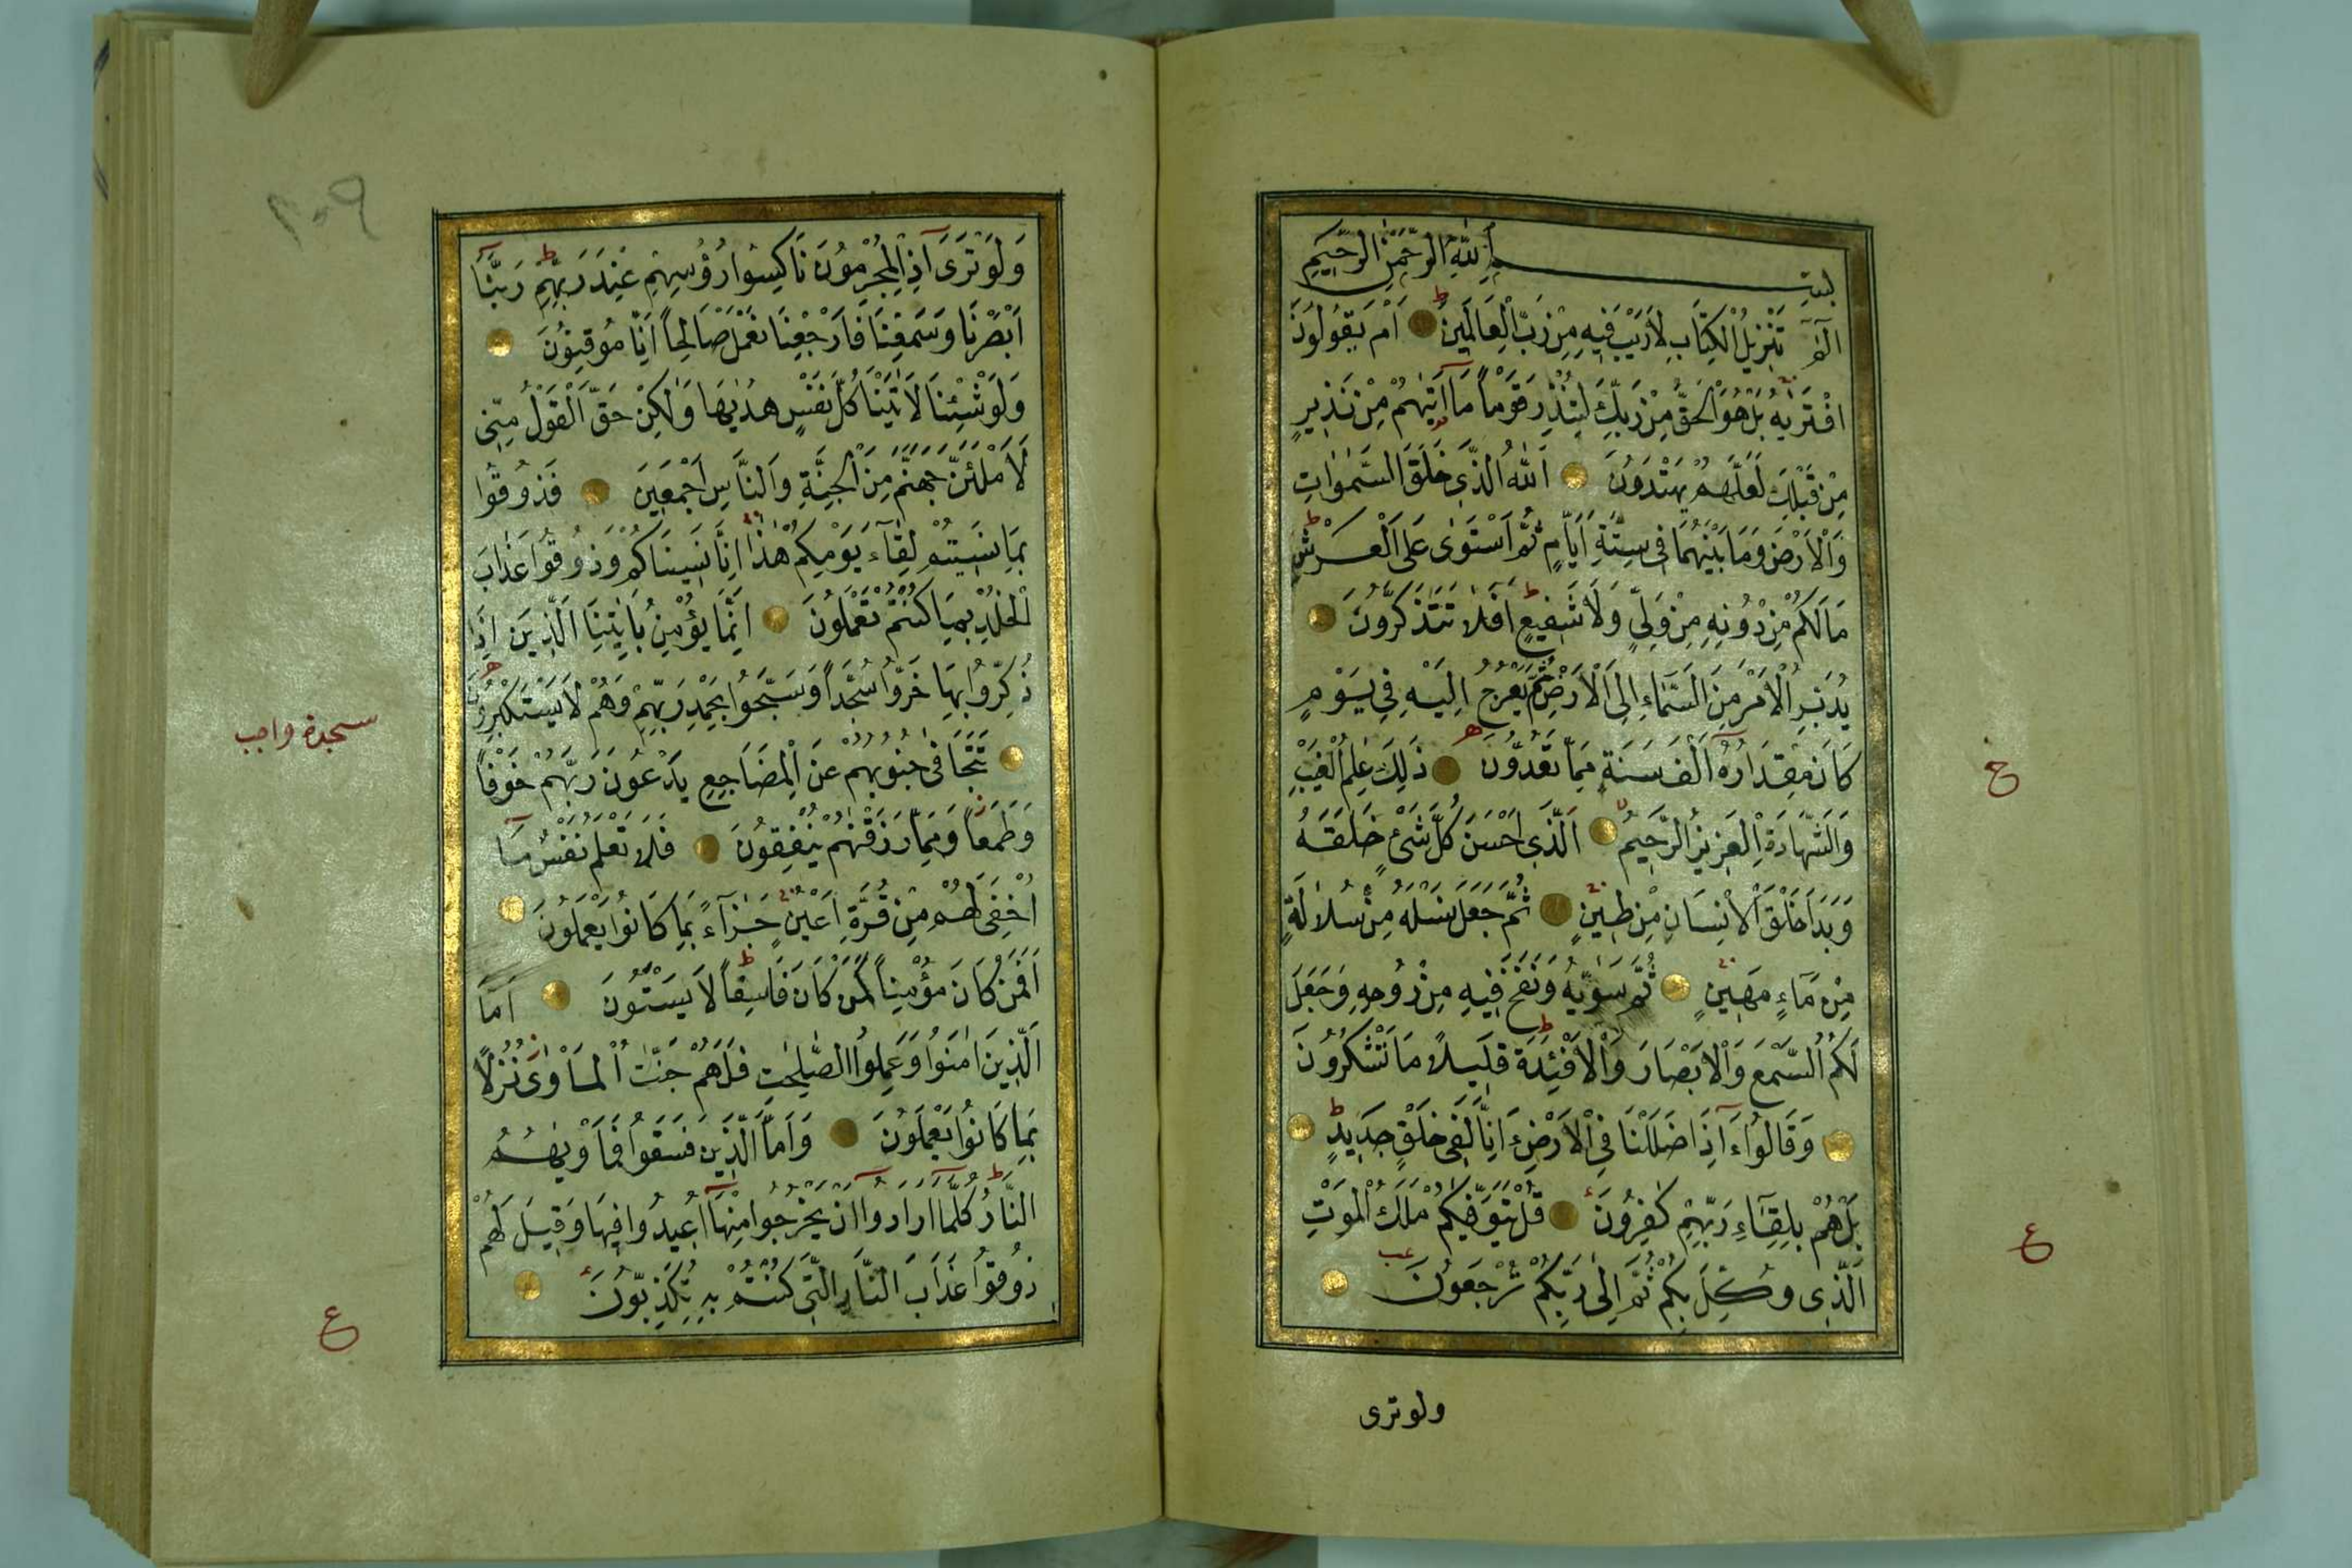 بِسْمِ اللّٰهِ الرَّحْمٰنِ الرَّحِيمِ
الٓمٓ تَنْزِيلُ الْكِتَابِ لَارَيْبَ فِيهِ مِنْ رَبِّ الْعَالَمِينَ اَمْ يَقُولُونَ
افْتَرٰيهُ بَلْ هُوَ الْحَقُّ مِنْ رَبِّكَ لِتُنْذِرَ قَوْماً مَا اَتٰيهُمْ مِنْ نَذِيرٍ
مِنْ قَبْلِكَ لَعَلَّهُمْ يَهْتَدُونَ اَللّٰهُ الَّذِى خَلَقَ السَّمٰوَاتِ
وَالْاَرْضَ وَمَا بَيْنَهُمَا فِى سِتَّةِ اَيَّامٍ ثُمَّ اسْتَوٰى عَلَى الْعَرْشِ
مَالَكُمْ مِنْ دُونِهِ مِنْ وَلِىٍّ وَلَا شَفِيعٍ اَفَلَا تَتَذَكَّرُونَ
يُدَبِّرُ الْاَمْرَ مِنَ السَّمَاءِ اِلَى الْاَرْضِ ثُمَّ يَعْرُجُ اِلَيْهِ فِى يَوْمٍ
كَانَ مِقْدَارُهُ اَلْفَ سَنَةٍ مِمَّا تَعُدُّونَ ذٰلِكَ عٰلِمُ الْغَيْبِ
وَالشَّهَادَةِ الْعَزِيزُ الرَّحِيمُ اَلَّذِى اَحْسَنَ كُلَّ شَىْءٍ خَلَقَهُ
وَبَدَاَ خَلْقَ الْاِنْسَانِ مِنْ طِينٍ ثُمَّ جَعَلَ نَسْلَهُ مِنْ سُلَالَةٍ
مِنْ مَآءٍ مَهِينٍ ثُمَّ سَوّٰيهُ وَنَفَخَ فِيهِ مِنْ رُوحِهِ وَجَعَلَ
لَكُمُ السَّمْعَ وَالْاَبْصَارَ وَالْاَفْئِدَةَ قَلِيلًا مَا تَشْكُرُونَ
وَقَالُوا ءَاِذَا ضَلَلْنَا فِى الْاَرْضِ ءَاِنَّا لَفِى خَلْقٍ جَدِيدٍ
بَلْ هُمْ بِلِقَآءِ رَبِّهِمْ كٰفِرُونَ قُلْ يَتَوَفّٰيكُمْ مَلَكُ الْمَوْتِ
الَّذِى وُكِّلَ بِكُمْ ثُمَّ اِلٰى رَبِّكُمْ تُرْجَعُونَ
ولو ترى
ع
ع
٢٠٩
وَلَوْ تَرٰى اِذِ الْمُجْرِمُونَ نَاكِسُوا رُؤُسِهِمْ عِنْدَ رَبِّهِمْ رَبَّنَا
اَبْصَرْنَا وَسَمِعْنَا فَارْجِعْنَا نَعْمَلْ صَالِحاً اِنَّا مُوقِنُونَ
وَلَوْ شِئْنَا لَاٰتَيْنَا كُلَّ نَفْسٍ هُدٰيهَا وَلٰكِنْ حَقَّ الْقَوْلُ مِنِّى
لَاَمْلَئَنَّ جَهَنَّمَ مِنَ الْجِنَّةِ وَالنَّاسِ اَجْمَعِينَ فَذُوقُوا
بِمَا نَسِيتُمْ لِقَآءَ يَوْمِكُمْ هٰذَا اِنَّا نَسِينَاكُمْ وَذُوقُوا عَذَابَ
الْخُلْدِ بِمَا كُنْتُمْ تَعْمَلُونَ اِنَّمَا يُؤْمِنُ بِاٰيٰتِنَا الَّذِينَ اِذَا
ذُكِّرُوا بِهَا خَرُّوا سُجَّداً وَسَبَّحُوا بِحَمْدِ رَبِّهِمْ وَهُمْ لَا يَسْتَكْبِرُونَ
تَتَجَافٰى جُنُوبُهُمْ عَنِ الْمَضَاجِعِ يَدْعُونَ رَبَّهُمْ خَوْفاً
وَطَمَعاً وَمِمَّا رَزَقْنٰهُمْ يُنْفِقُونَ فَلَا تَعْلَمُ نَفْسٌ مَا
اُخْفِىَ لَهُمْ مِنْ قُرَّةِ اَعْيُنٍ جَزَآءً بِمَا كَانُوا يَعْمَلُونَ
اَفَمَنْ كَانَ مُؤْمِناً كَمَنْ كَانَ فَاسِقاً لَا يَسْتَوُنَ اَمَّا
الَّذِينَ اٰمَنُوا وَعَمِلُوا الصّٰلِحٰتِ فَلَهُمْ جَنّٰتُ الْمَاْوٰى نُزُلًا
بِمَا كَانُوا يَعْمَلُونَ وَاَمَّا الَّذِينَ فَسَقُوا فَمَاْوٰيهُمُ
النَّارُ كُلَّمَا اَرَادُوا اَنْ يَخْرُجُوا مِنْهَا اُعِيدُوا فِيهَا وَقِيلَ لَهُمْ
ذُوقُوا عَذَابَ النَّارِ الَّتِى كُنْتُمْ بِهِ تُكَذِّبُونَ
سجدة واجب
ع